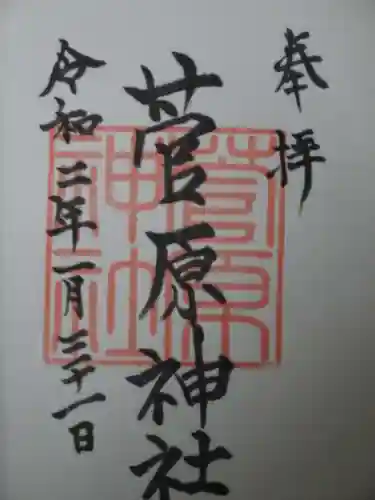 奉拝
菅原神社
令和二年一月三十一日
菅原
神社